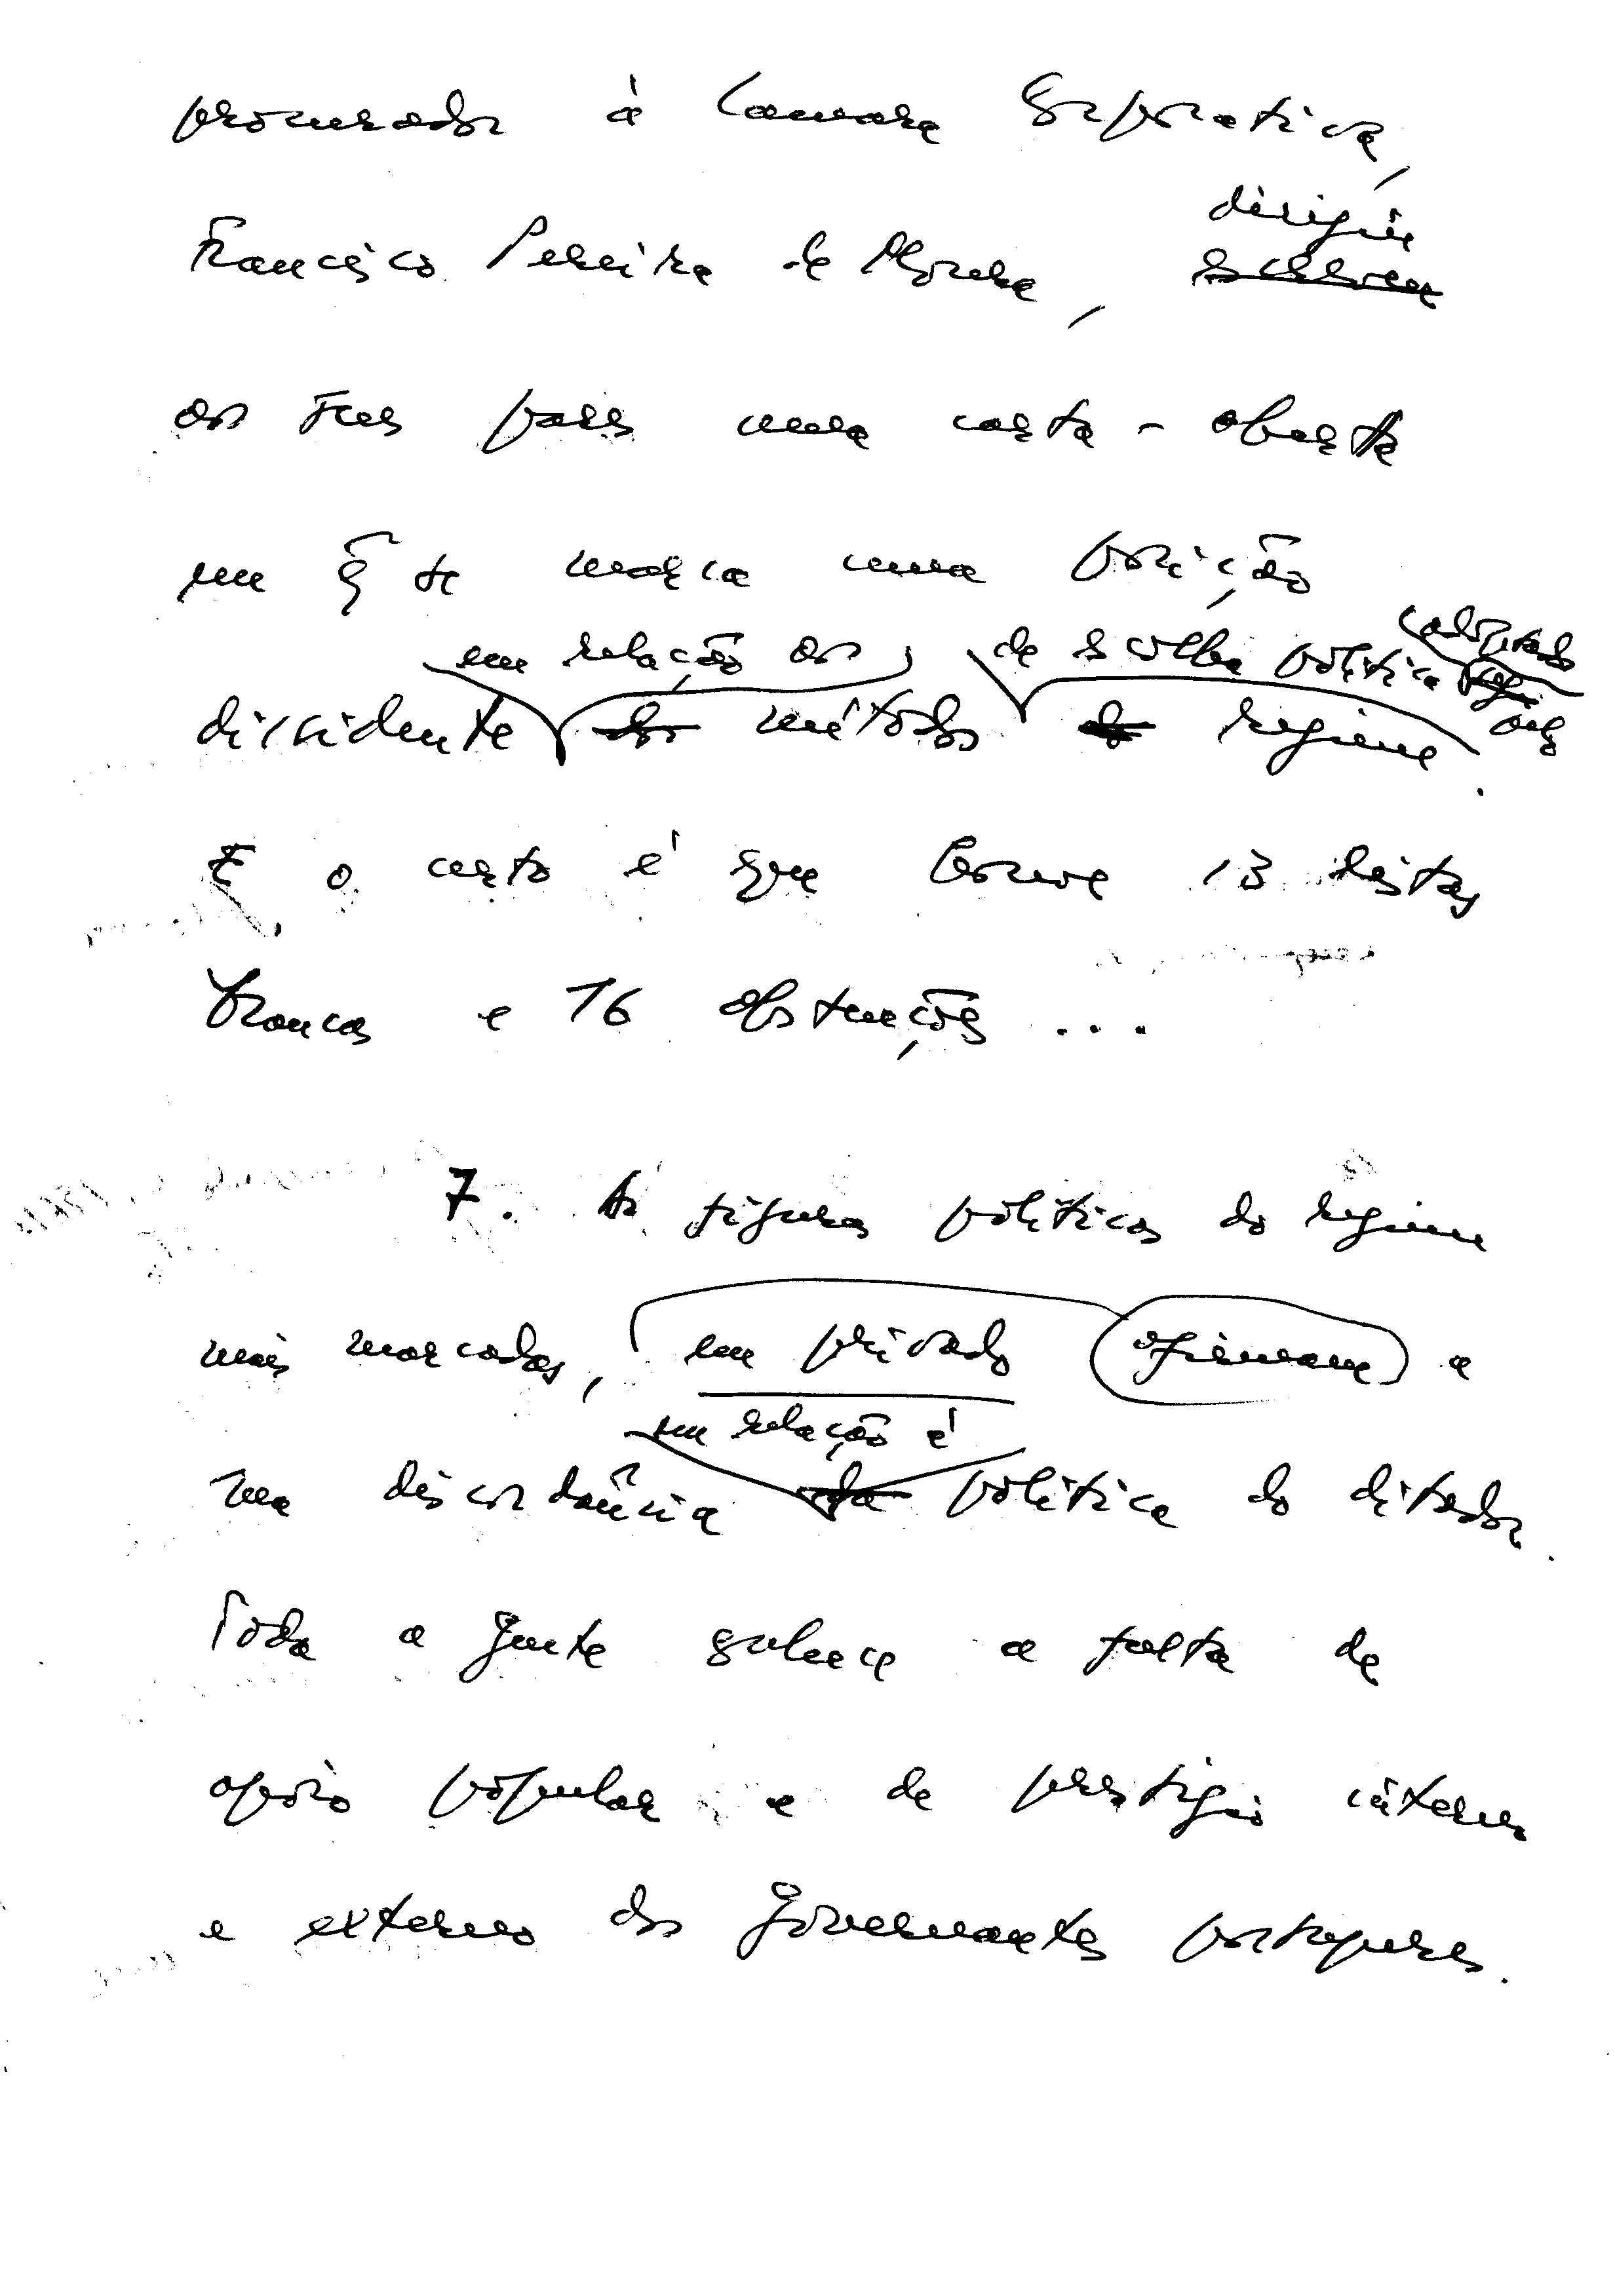 procurador à Camara Corporativa,
Francisco Pereira de Moura, dirigiu
escreveu
aos seus pares uma carta-aberta
em q̃ se marca uma posição
em relação aos de escolha política adoptados
dissidente dos métodos do regime pelo.
E o certo é que houve 13 listas
brancas e 16 abstenções ...
7. As figuras políticas do regime
mais marcadas, em privado afirmam a
em relação à
sua discordância da política do ditador.
Toda a gente conhece a falta de
apoio popular e de prestígio interno
e externo dos governantes portugueses.